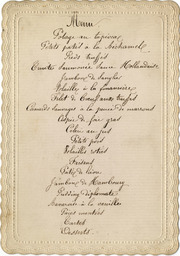 Menu
Potage au tapioca
Petits patés à la Bechamel
Pieds truffés
Truite saumonée sauce Hollandaise
Jambon de Sanglier
Volaille à la financière
Filet de Bœuf aux truffes
Canards sauvages à la purée de marrons
Aspic de foie gras
Céleri au jus
Petits pois
Volailles rôties
Faisans
Patés de lièvre
Jambon de Hambourg
Pudding diplomate
à la vanille
Pièces montées
Desserts